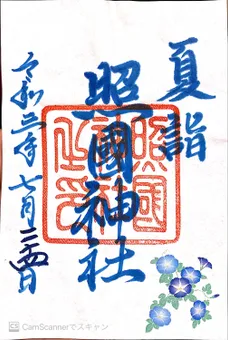 夏詣
照國神社
令和三年七月二十四日
照國神社之印
CamScannerでスキャン